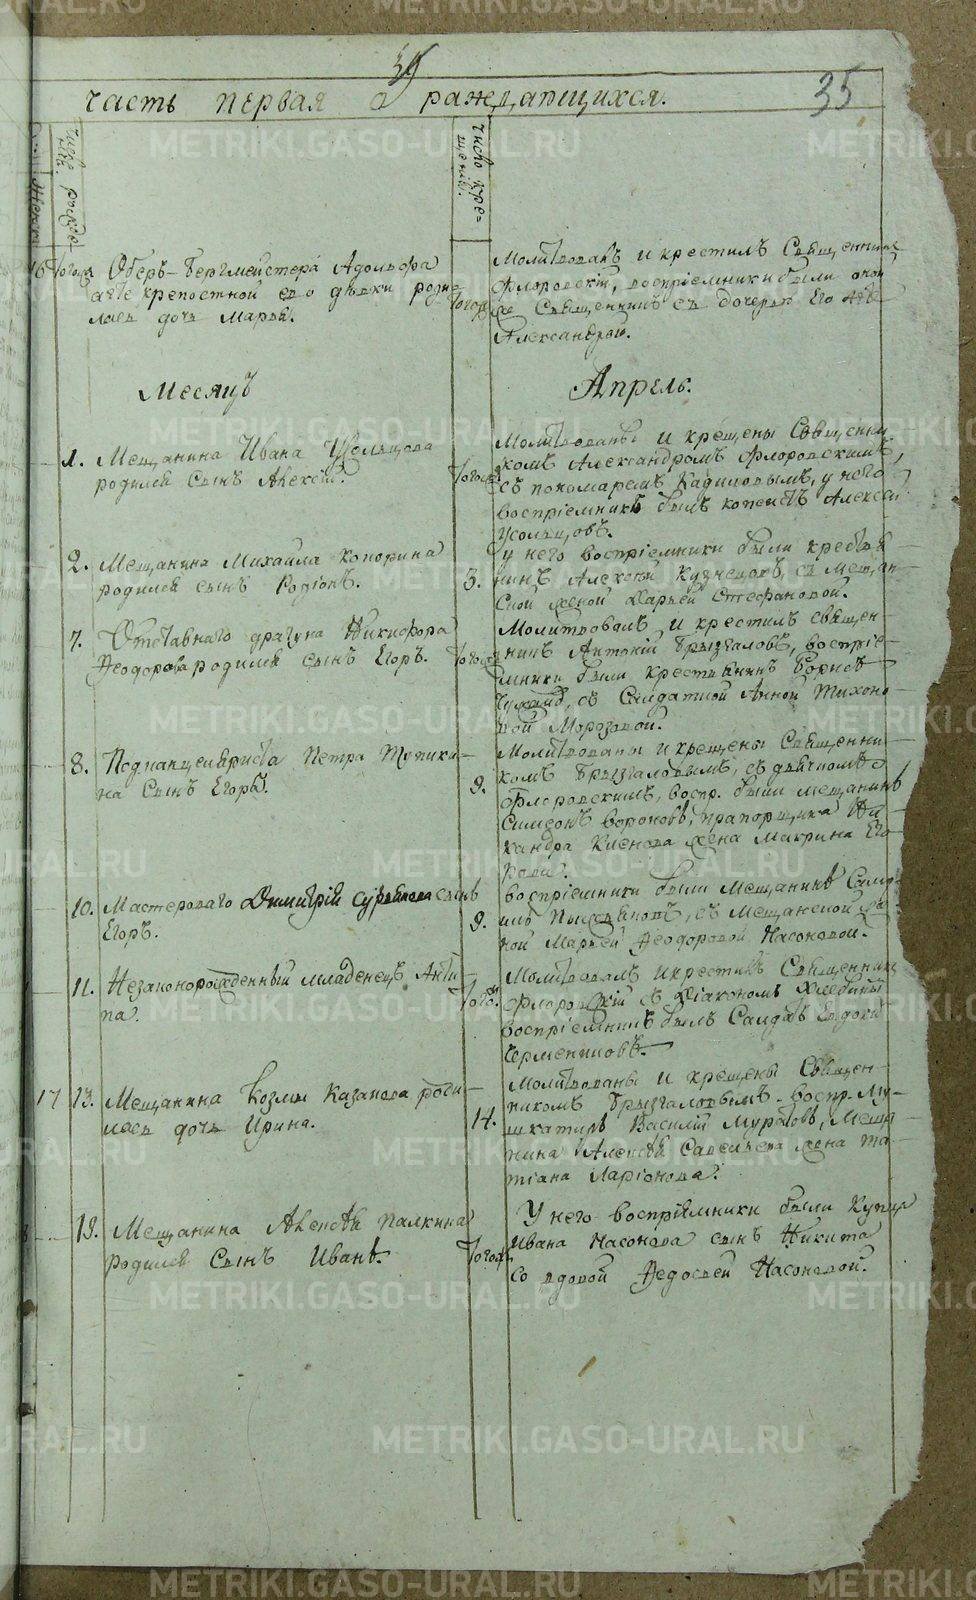 35
часть первая о раждающихся.
число рожде-
число кре-
щенiя.
Женск
16 тогож Оберъ-Бергмейстера Адольфа
крепостной ево девки роди
лась дочь Марья.
тогож
Молитвовалъ и крестилъ Священникъ
Флоровскiй, воспрiемники были оной
же Священникъ съ дочерью Его
Александрою.
Месяцъ Апрель.
1. Мещанина Ивана Усольцова
родился сынъ Алексiй.
тогож
Молитвованы и крещены Священни
комъ Александромъ Флоровскимъ,
съ пономаремъ Кадиловымъ, у него
воспрiемникъ былъ копеистъ Алексей
Усольцовъ.
2. Мещанина Михаила Копорина
родился сынъ Родiонъ.
3.
у него воспрiемники были крестья
нинъ Алексей Кузнецовъ, съ мещан-
ской женой Дарьей Стефановой.
7. Отставнаго драгуна Никифора
Феодорова родился сынъ Егоръ.
тогож
Молитвовалъ и крестилъ священ-
никъ Антонiй Брызгаловъ, воспрiе-
мники были крестьянинъ Борисъ
съ Салдаткой Анной Тихоно-
вой Морозовой.
8. Подканцеляриста Петра Тупики-
на сынъ Егоръ.
9.
Молитвованы и крещены Священни-
комъ Брызгаловымъ, съ дьячкомъ
Флоровскимъ, воспр. были мещанинъ
Симеонъ Вороновъ, прапорщика Ни-
кандра Киснова жена Макрина Его
рова.
10. Мастероваго Димитрiя сынъ
Егоръ.
9.
воспрiемники были Мещанинъ Само-
илъ съ Мещанской же-
ной Марьей Феодоровой Насоновой.
11. Незаконорожденный младенецъ Анти
па.
тогож
Молитвовалъ и крестилъ Священникъ
Флоровскiй съ Дiакономъ Хлебины
воспрiемникъ былъ Салдатъ Евдоки
Черменниновъ.
17 13. Мещанина Козмы Казакова роди-
лась дочь Ирина.
14.
Молитвованы и крещены Священ-
никомъ Брызгаловымъ. воспр. Му-
шкатиръ Василiй Муратовъ, Меща
нина Алексея Савельева жена Та-
тiана Ларiонова.
18. Мещанина Алексея Палкина
родился сынъ Иванъ.
тогож
У него воспрiемники были Купца
Ивана Насонова сынъ Никита
Со вдовой Федосьей Насоновой.
METRIKI.GASO-URAL.RU